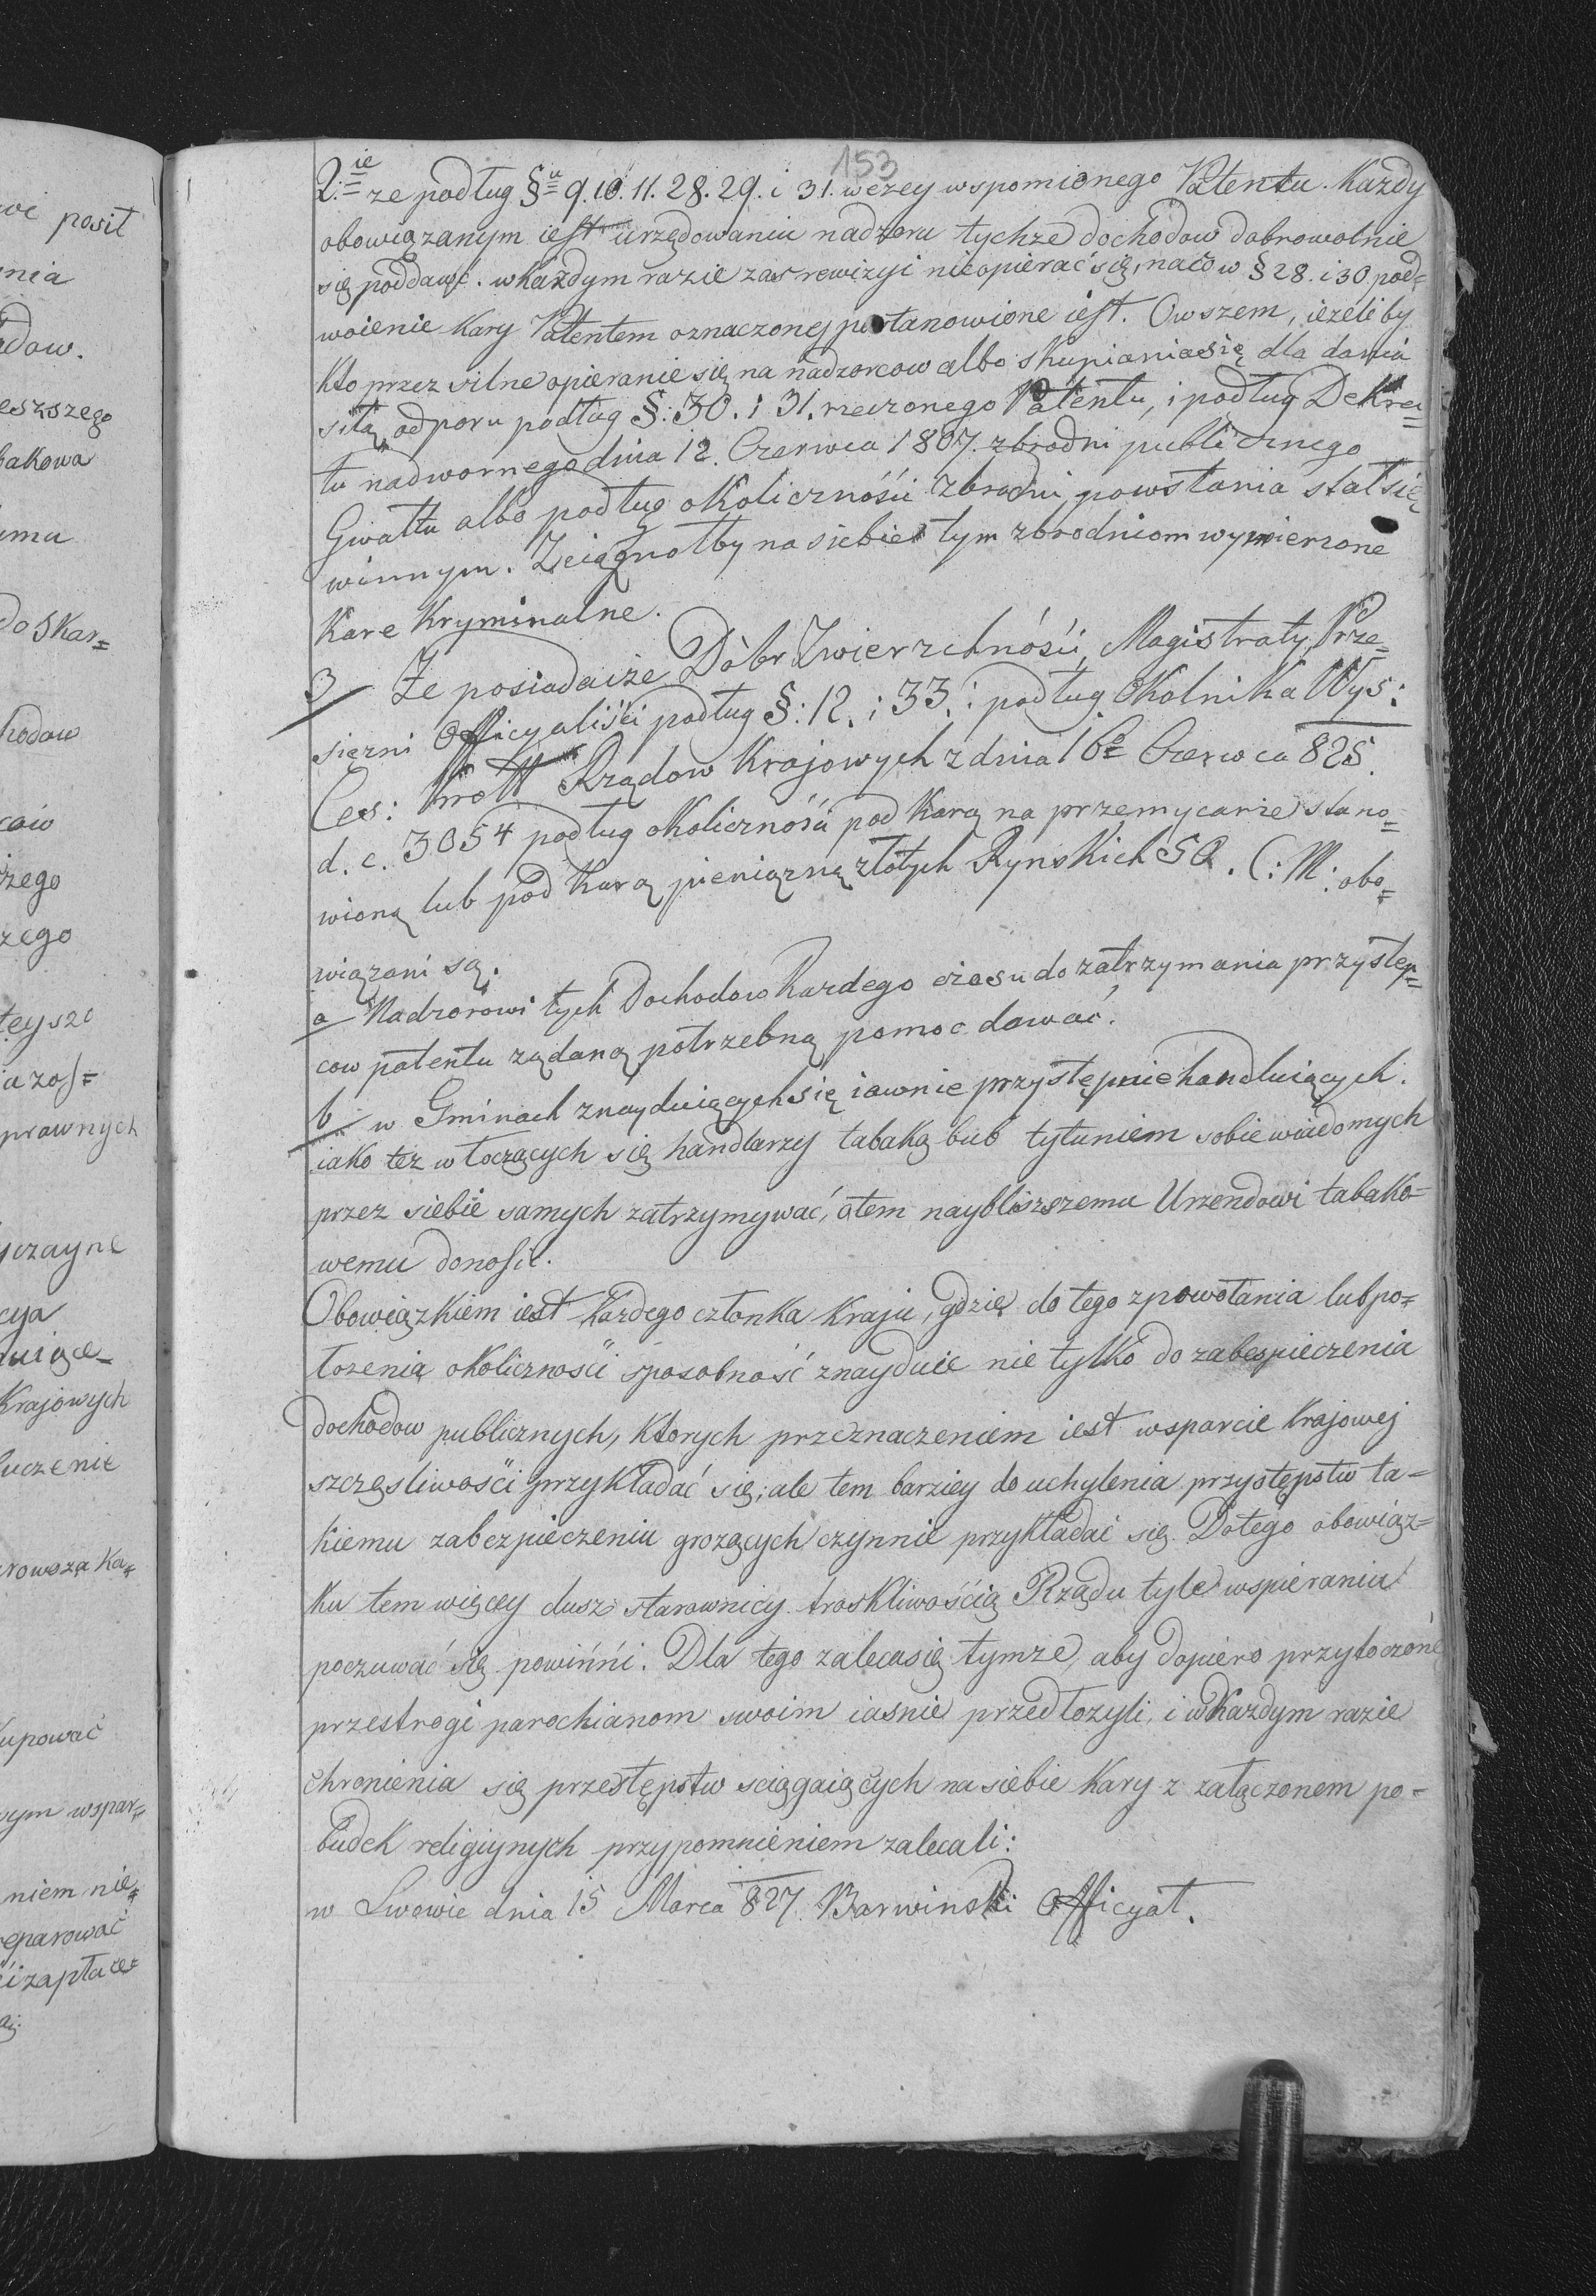 153
2.ie ze podług §u 9. 10. 11. 28. 29. i 31. wezey wspomionego Patentu. Kazdy
obowiązanym iest urzędowaniu nadzoru tychze dochodow dobrowolnie
się poddawać. wkazdym razie zas rewizyi nieopierać się, naco w § 28. i 30 pod=
woienie Kary Patentem oznaczoney postanowione iest. Owszem, iezeliby
Kto przez silne opieranie się na nadzorcow albo skupianiasię dla dania
siłą odporu podług §: 30. i 31. rzeczonego Patentu, i podług Dekre=
tu nadwornego dnia 12. Czerwca 1807. zbrodni publicznego
Gwałtu albo podług okolicznośii zbrodni powstania stał się
winnym. Zciągnołby na siebie tym zbrodniom wymierzone
Kare Kryminalne.
3 Ze posiadaize Dóbr Zwierzchnośii, Magistraty, Prze=
siężni Officyaliści podług §: 12. i 33. i podług Okolnika Wys:
Ces: Rządow Krajowych z dnia 16o Czerwca 825.
d. c. 3054 podług okolicznośii pod Karą na przemycanie stano=
wioną lub pod Karą pieniązną złotych Rynskich 50. C: M: obo=
wiązani są.
a Nadzorowi tych Dochodow Kazdego czasu do zatrzymania przystęp=
cow patentu ządaną potrzebną pomoc dawać.
b w Gminach znayduiącychsię iawnie przystępnie handluiących.
iako tez włoczących się handlarzy tabaką bub tytuniem sobie wiadomych
przez siebie samych zatrzymywać, otem naybliszszemu Urzendowi tabako=
wemu donosić.
Obowiązkiem iest Kazdego członka Kraju, gdzię do tego zpowołania lub po=
łozenia okolicznosii sposobność znayduie nie tylko do zabespieczenia
dochodow publicznych, Ktorych przeznaczeniem iest wsparcie Krajowej
szczęsliwości przykładać się; ale tem barziey do uchylenia przystępstw ta=
kiemu zabezpieczeniu grozących czynnie przykładać się. Dotego obowiąz=
ku tem więcey dusz starownicy troskliwośćią Rządu tyle wspierania
poczuwać się powinńi. Dla tego zalecasię tymze, aby dopiero przytoczone
przestrogi parochianom swoim iasnie przedłozyli, i wKazdym razie
chronienia się przestępstw sciągaiących na siebie Kary z załączonem po=
budek religiynych przypomnieniem zalecali:
w Lwowie dnia 15 Marca 827. Barwinski Officyał.
posił
nia
dow.
eszszego
bakowa
emu
do skar=
hodow
żego
zego
teysze
prawnych
yczayne
cya
Krajowych
luczenie
rowsza Ka=
kupować
wym wspar=
niem nie=
eparować